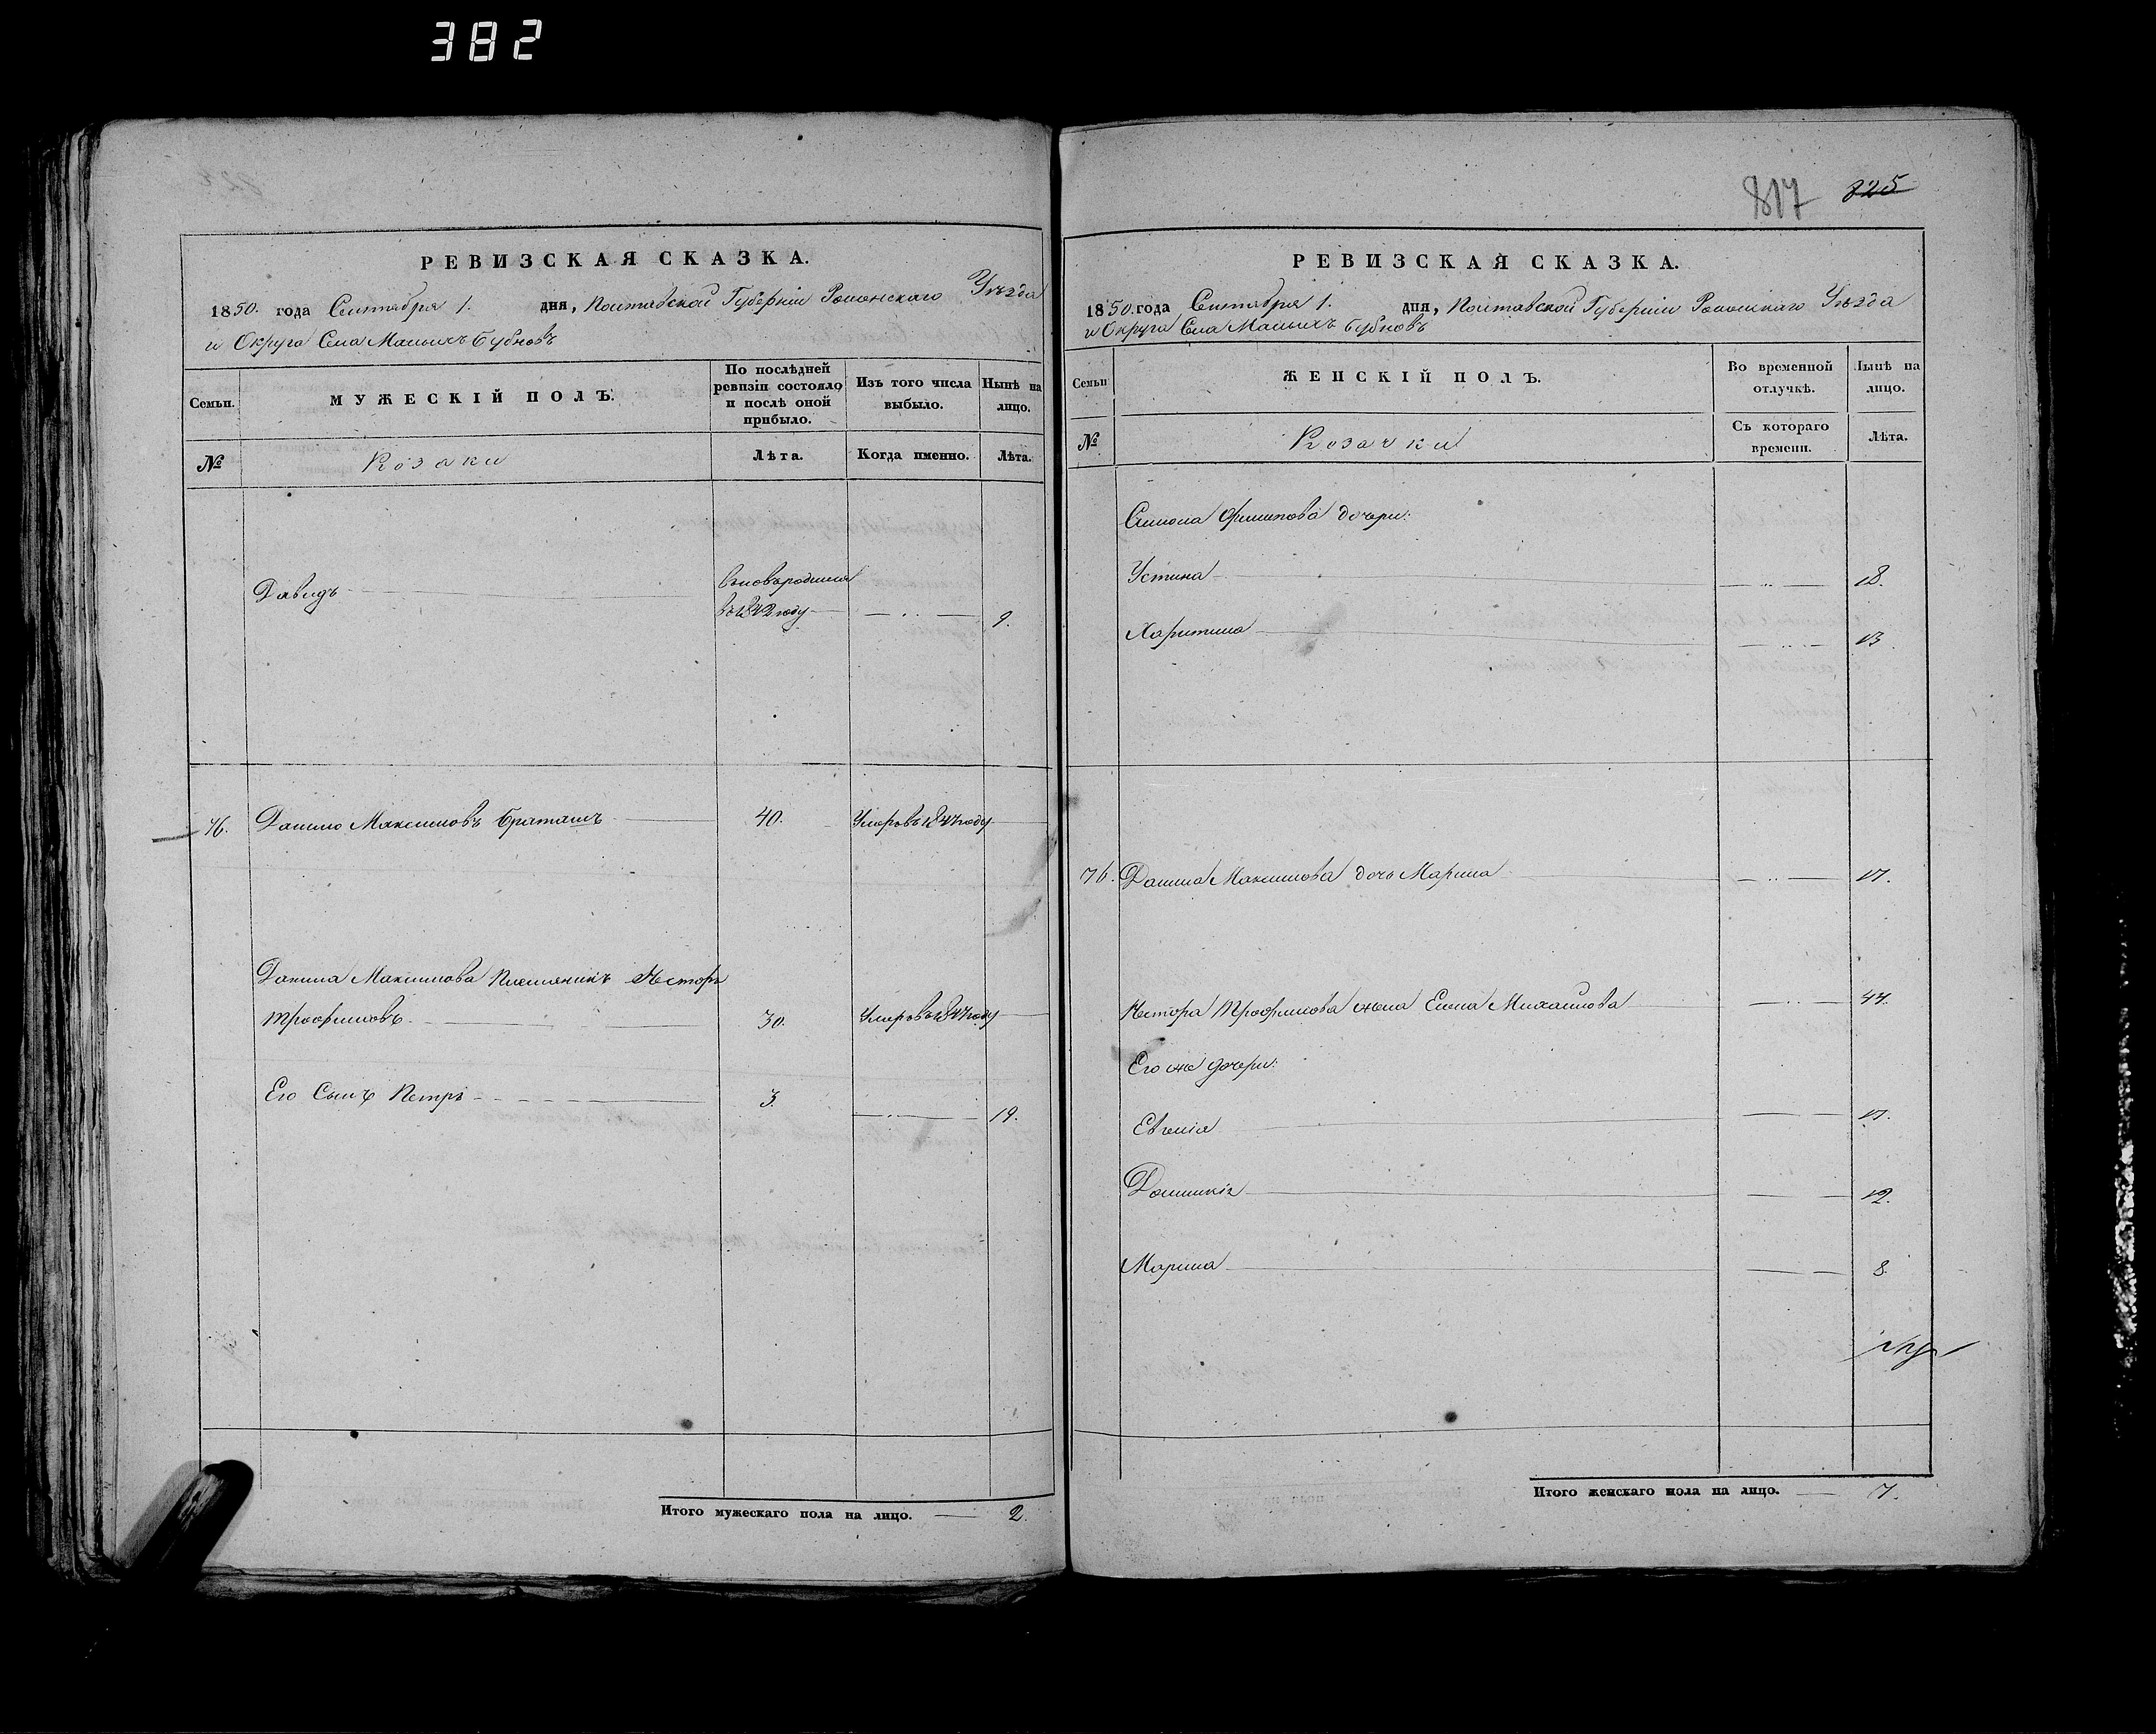 382
РЕВИЗСКАЯ СКАЗКА.
1850. года Сентября 1. дня, Полтавской Губерніи Роменскаго Уѣзда
и Округа Села Малыхъ Бубновъ
Семьи.
МУЖЕСКІЙ ПОЛЪ.
По послѣдней ревизіи состояло и послѣ оной прибыло.
Изъ того числа выбыло.
Нынѣ на лицо.
№
Козаки
Лѣта.
Когда именно.
Лѣта.
Давидъ
въ 1842 году 9.
76. Данило Максимовъ Браташъ 40. Умеръ въ 1847 году
Данила Максимова Племяникъ Несторъ
Трофимовъ 30. Умеръ въ 1847 году
Его Сынъ Петръ 3. 19.
Итого мужескаго пола на лицо. 2.
817 825
РЕВИЗСКАЯ СКАЗКА.
1850. года Сентября 1. дня, Полтавской Губерніи Роменскаго Уѣзда
и Округа Села Малыхъ Бубновъ
Семьи
ЖЕНСКІЙ ПОЛЪ.
Во временной отлучкѣ.
Нынѣ на лицо.
№
Козачки
Съ котораго времени.
Лѣта.
Филипова дочери:
Устина 18.
Харитина 13
76. Данила Максимова дочь Марина 17.
Нестора Трофимова жена Елена Михаилова 44.
Его же дочери:
Евгенія 17.
Домникія 12.
Марина 8.
Итого женскаго пола на лицо. 7.